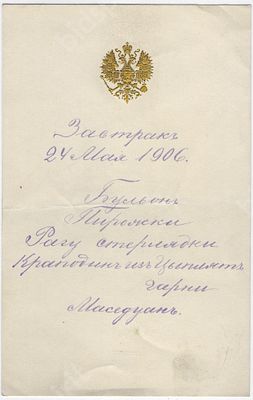 Завтракъ
24 Мая 1906.
Бульонъ
Пирожки
Рагу стерлядки
Краподинъ изъ Цыплятъ
гарни
Маседуанъ.